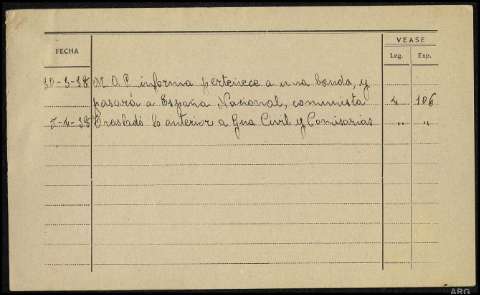 FECHA
VEASE
Leg. Exp.
30-3-38 M.O.P. informa pertenece a una banda, y
pasará a España Nacional, comunista 4 106
2-4-38 Traslado lo anterior a Gua Civil y Comisarias " "
ARG